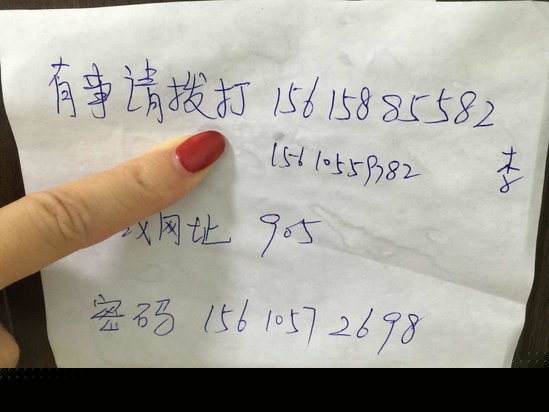 有事请拨打 15615885582
15610559382 李
网址 905
密码 15610572698